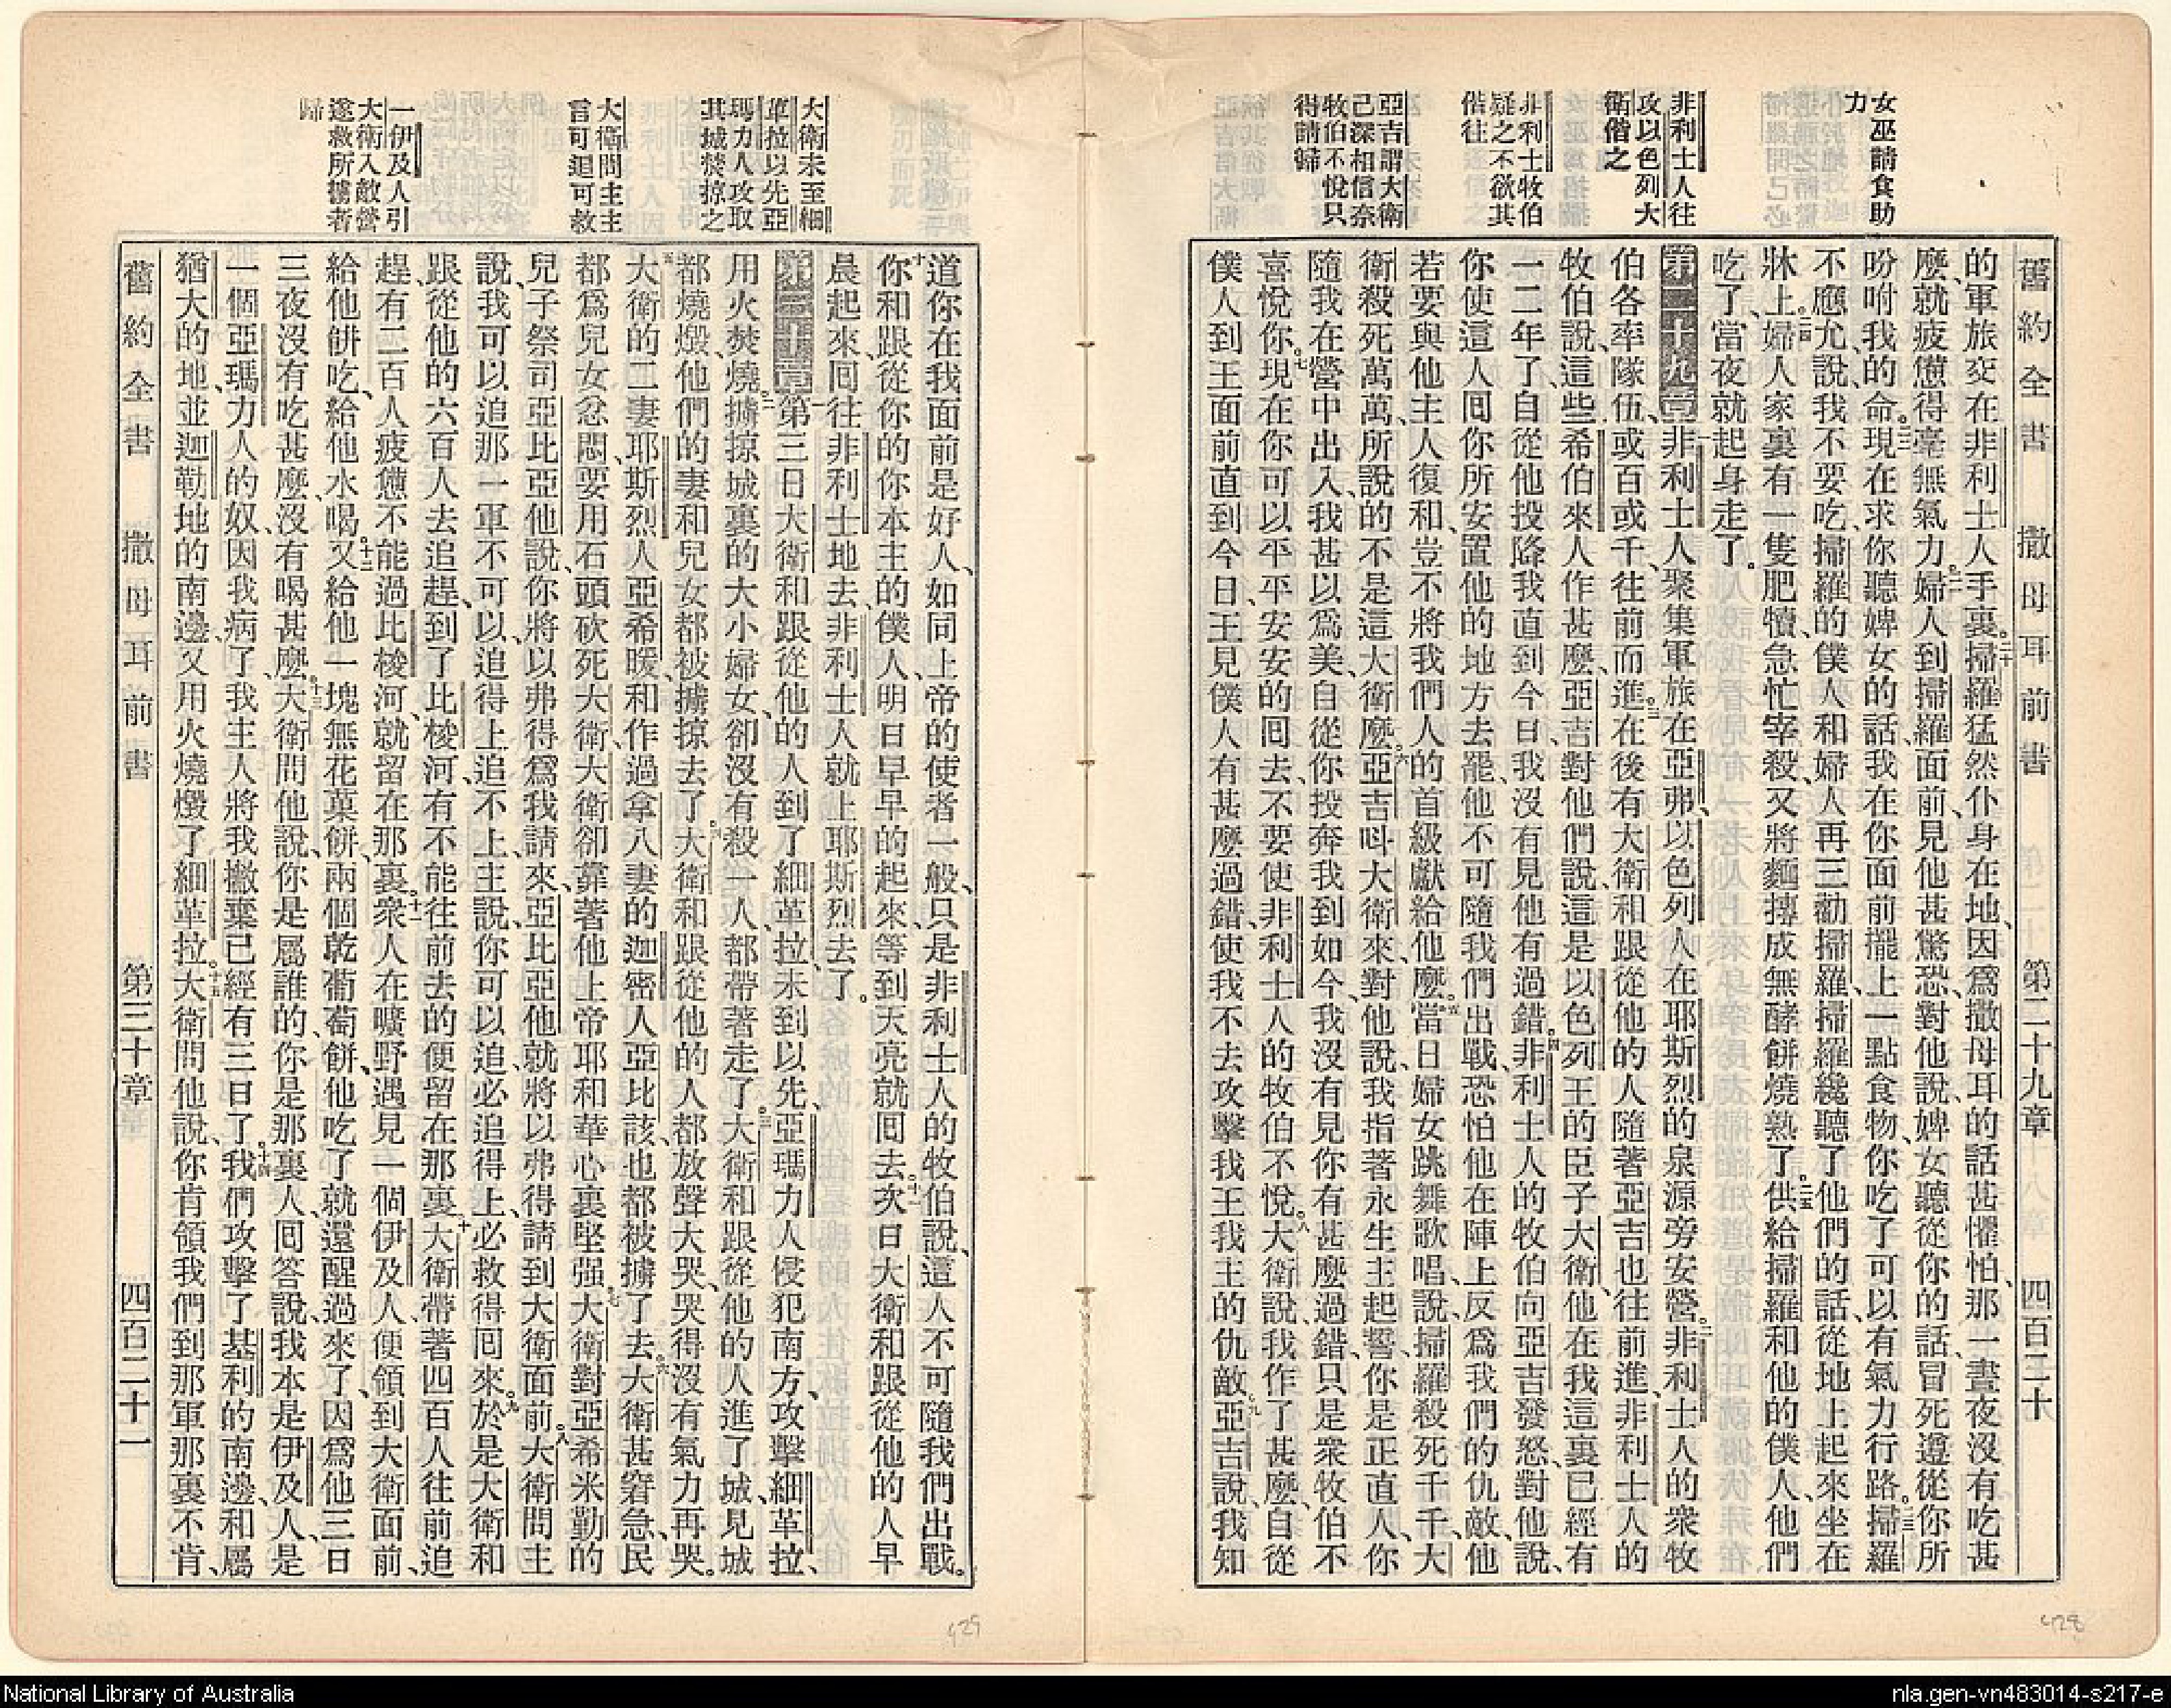 舊約全書 撒母耳前書 第二十九章 四百二十
女巫請食助
力
非利士人往
攻以色列大
衛偕之
非利士牧伯
疑之不欲其
偕往
亞吉謂大衛
己深相信奈
牧伯不悅只
得請歸
的軍旅交在非利士人手裏。二十掃羅猛然仆身在地、因爲撒母耳的話甚懼怕、那一晝夜沒有吃甚
麼、就疲憊得毫無氣力。二一婦人到掃羅面前、見他甚驚恐、對他說、婢女聽從你的話、冒死遵從你所
吩咐我的命。二二現在求你聽婢女的話、我在你面前擺上一點食物、你吃了可以有氣力行路。二三掃羅
不應允、說、我不要吃、掃羅的僕人和婦人再三勸掃羅、掃羅纔聽了他們的話、從地上起來坐在
牀上。二四婦人家裏有一隻肥犢、急忙宰殺、又將麵摶成無酵餅燒熟了。二五供給掃羅和他的僕人、他們
吃了、當夜就起身走了。
第二十九章 一非利士人聚集軍旅在亞弗、以色列人在耶斯烈的泉源旁安營。二非利士人的衆牧
伯各率隊伍、或百或千、往前而進。三在後有大衛和跟從他的人隨著亞吉也往前進、非利士人的
牧伯說、這些希伯來人作甚麼、亞吉對他們說、這是以色列王的臣子大衛、他在我這裏已經有
一二年了、自從他投降我直到今日、我沒有見他有過錯。四非利士人的牧伯向亞吉發怒、對他說、
你使這人囘你所安置他的地方去罷、他不可隨我們出戰、恐怕他在陣上反爲我們的仇敵、他
若要與他主人復和、豈不將我們人的首級獻給他麼。五當日婦女跳舞歌唱說、掃羅殺死千千、大
衛殺死萬萬、所說的不是這大衛麼。六亞吉呌大衛來、對他說、我指著永生主起誓、你是正直人、你
隨我在營中出入、我甚以爲美、自從你投奔我到如今、我沒有見你有甚麼過錯、只是衆牧伯不
喜悅你。七現在你可以平平安安的囘去、不要使非利士人的牧伯不悅。八大衛說、我作了甚麼、自從
僕人到王面前直到今日、王見僕人有甚麼過錯、使我不去攻擊我王我主的仇敵。九亞吉說、我知
大衛未至細
革拉以先亞
瑪力人攻取
其城焚掠之
大衛問主主
言可追可救
一伊及人引
大衛入敵營
遂救所擄者
歸
道你在我面前是好人、如同上帝的使者一般、只是非利士人的牧伯說、這人不可隨我們出戰。
十你和跟從你的你本主的僕人、明日早早的起來、等到天亮就囘去。十一次日大衛和跟從他的人早
晨起來、囘往非利士地去、非利士人就上耶斯烈去了。
第三十章 一第三日大衛和跟從他的人到了細革拉、未到以先、亞瑪力人侵犯南方、攻擊細革拉、
用火焚燒。二擄掠城裏的大小婦女、卻沒有殺一人、都帶著走了。三大衛和跟從他的人進了城、見城
都燒燬、他們的妻和兒女都被擄掠去了。四大衛和跟從他的人都放聲大哭、哭得沒有氣力再哭。
五大衛的二妻、耶斯烈人亞希暖、和作過拿八妻的迦密人亞比該、也都被擄了去。六大衛甚窘急、民
都爲兒女忿悶、要用石頭砍死大衛、大衛卻靠著他上帝耶和華心裏堅强。七大衛對亞希米勒的
兒子祭司亞比亞他說、你將以弗得爲我請來、亞比亞他就將以弗得請到大衛面前。八大衛問主
說、我可以追那一軍不可以、追得上追不上、主說、你可以追、必追得上、必救得囘來。九於是大衛和
跟從他的六百人去追趕、到了比梭河、有不能往前去的便留在那裏。十大衛帶著四百人往前追
趕、有二百人疲憊不能過比梭河、就留在那裏。十一衆人在曠野遇見一個伊及人、便領到大衛面前、
給他餅吃、給他水喝。十二又給他一塊無花菓餅、兩個乾葡萄餅、他吃了就還醒過來了、因爲他三日
三夜沒有吃甚麼、沒有喝甚麼。十三大衛問他說、你是屬誰的、你是那裏人、囘答說、我本是伊及人、是
一個亞瑪力人的奴、因我病了、我主人將我撇棄已經有三日了。十四我們攻擊了基利的南邊、和屬
猶大的地、並迦勒地的南邊、又用火燒燬了細革拉。十五大衛問他說、你肯領我們到那軍那裏不肯、
舊約全書 撒母耳前書 第三十章 四百二十一
428
429
National Library of Australia
nla.gen-vn483014-s217-e